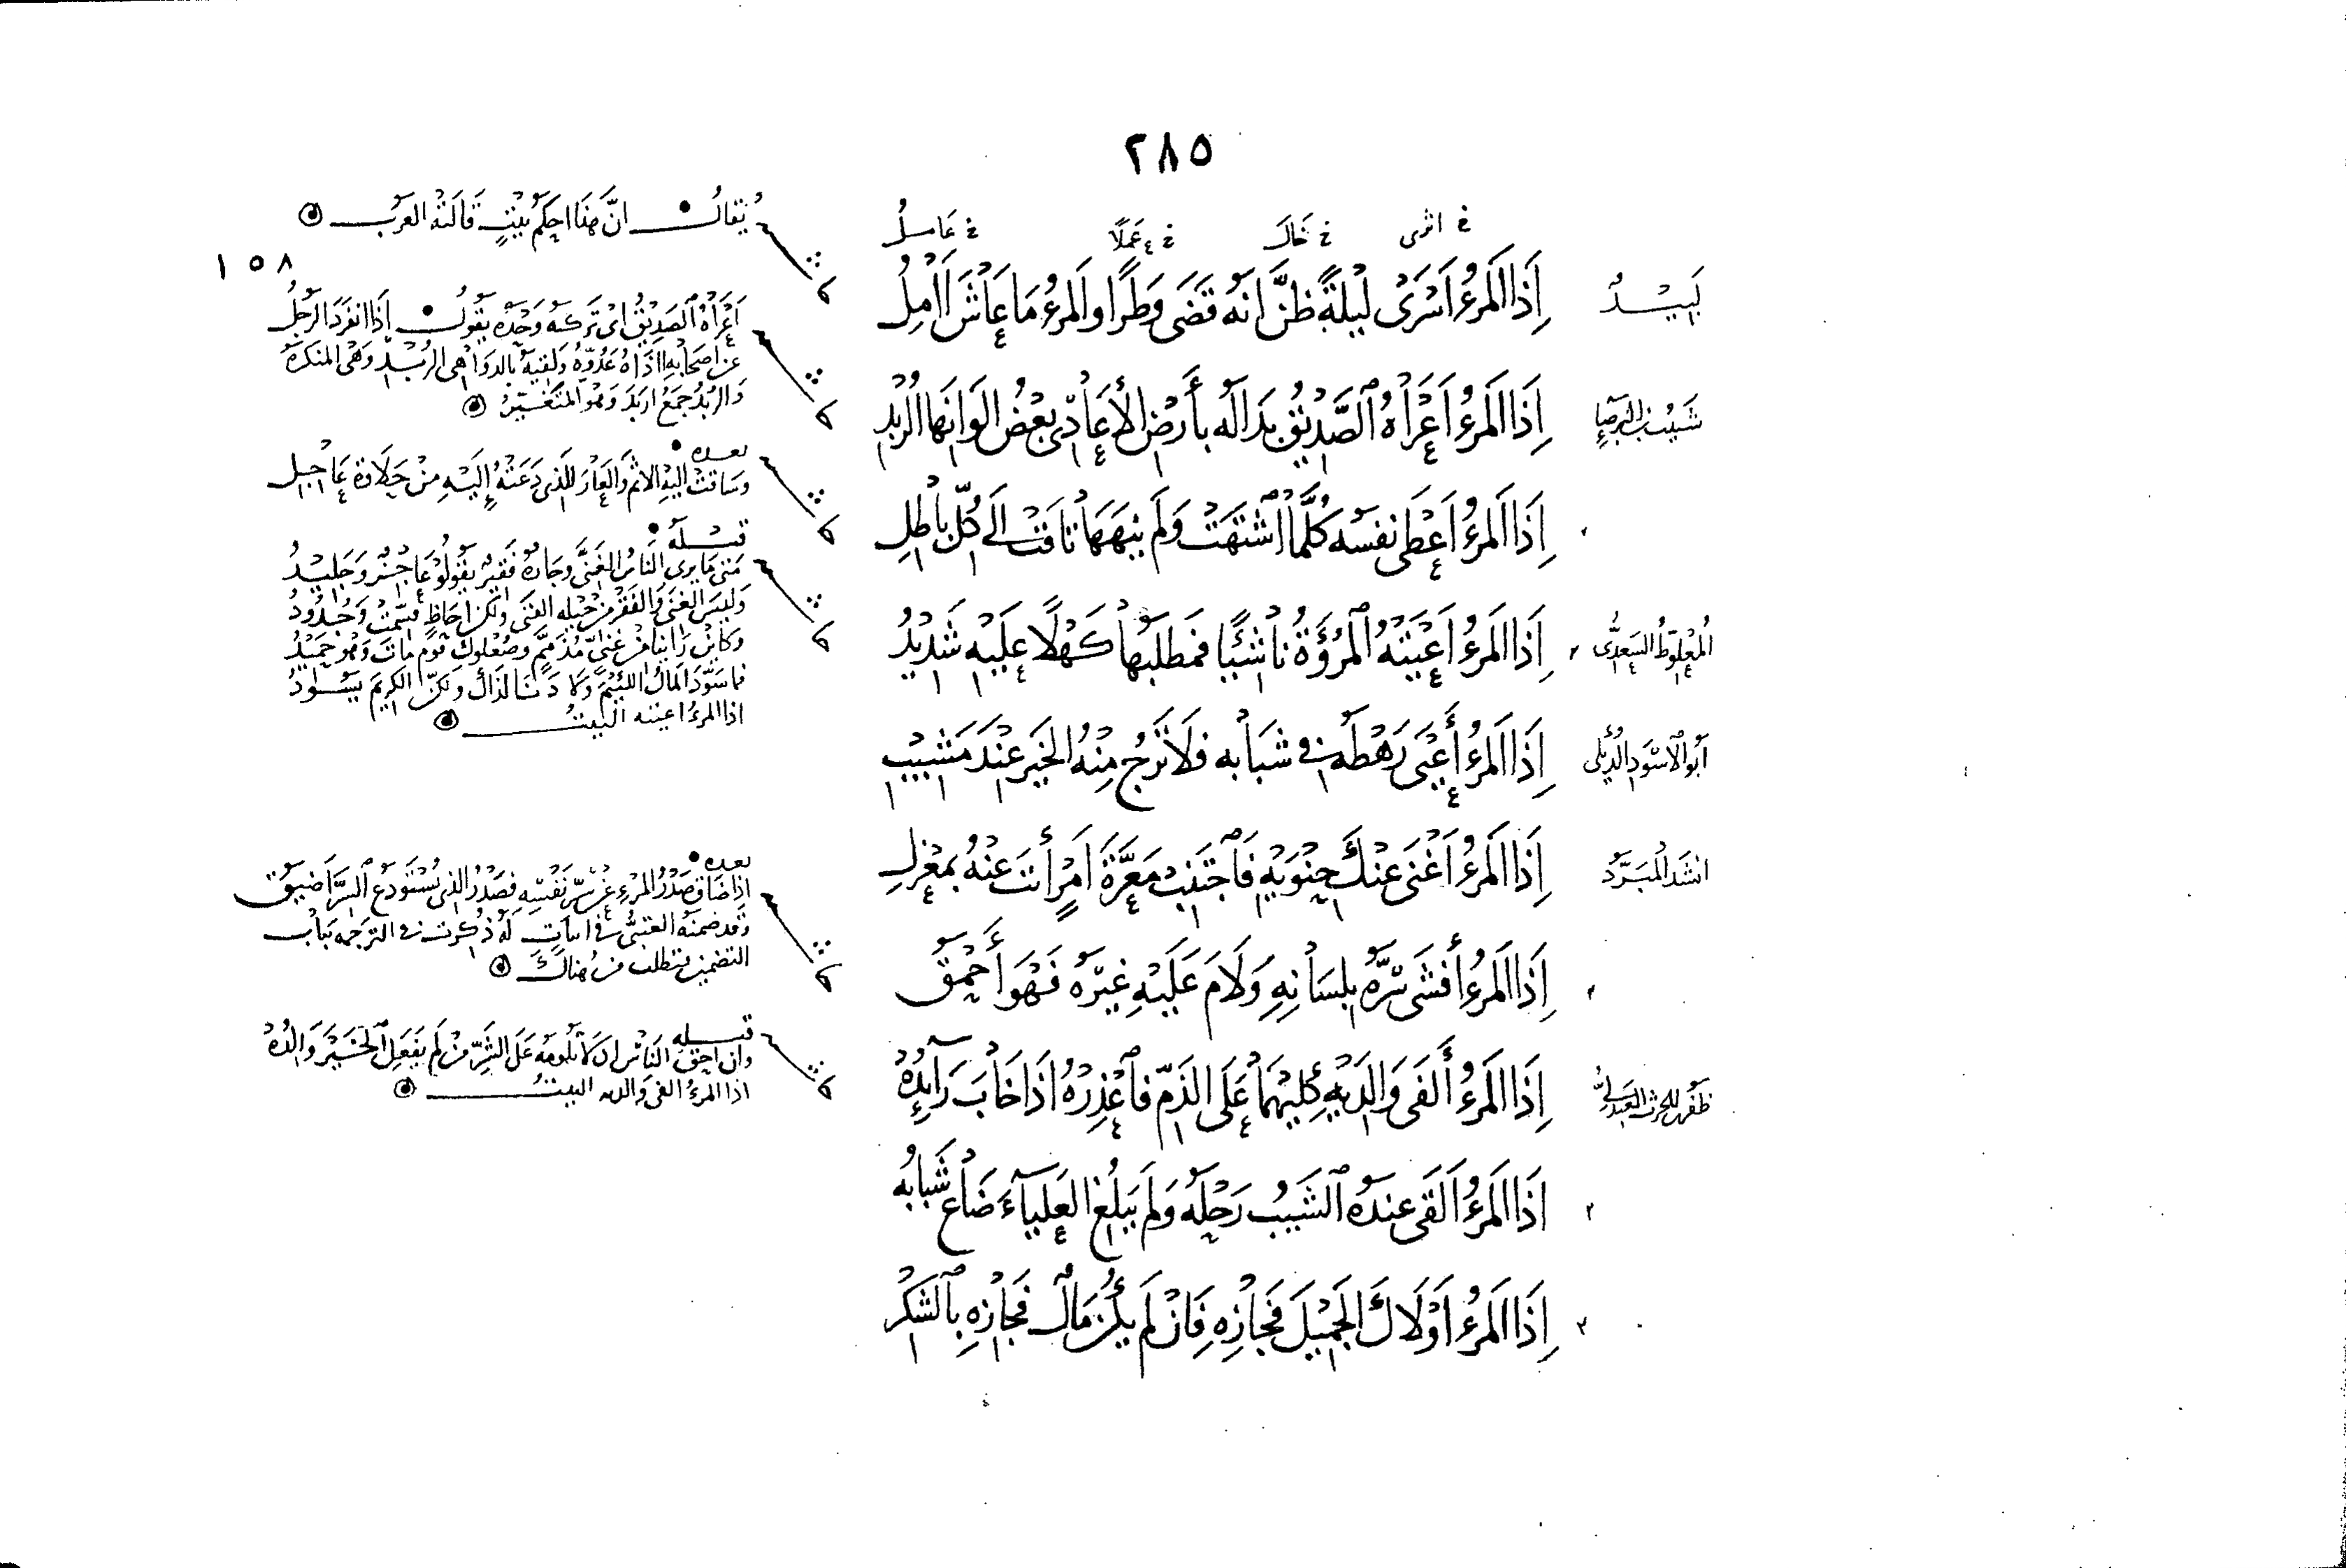 ٢٨٥
خ اثرى خ خال خ عملا خ عامل
لَبِيد
إِذَا المَرءُ اَسْرَىٰ لَيْلَةً ظَنَّ اَنهُ قَضَى وَطَرًا والمرءُ مَا عَاشَ اٰمِلُ
شَبِيْب بن البَرصَاءِ
إِذَا المَرءُ اَعْرَاهُ الصَّدِيْقُ بَدَا لَهُ بأَرضِ الأَعَادِى بَعْضُ اَلوَانِهَا الرُّبْدِ
إِذَا المَرءُ اَعطَى نفسَهُ كُلَّمَا اشتَهَتْ وَلَم يَنهَهَا تَاقَتْ الَى كُلِّ بَاطِلِ
المُعْلُوطُ السَّعْدِىُّ
إِذَا المَرءُ اَعْيَتْهُ المُرُؤَةُ نَاشِئًا فَمَطلَبُهَا كَهْلًا عَلَيْهِ شَدِيْدُ
اَبُو الاَسْوَدِ الدُّئِلى
إِذَا المَرءُ أَعْيَى رَهْطَهُ فى شَبَابِهِ فَلَا تَرْجُ مِنْهُ الخَيرَ عِنْدَ مَشِيْبِ
انشَدَ المُبَرَّد
إِذَا المَرءُ اَغْنَى عَنْكَ حِنْوَيْهِ فَاجْتَنِبْ مَعَرَّةَ اَمْرٍ أَنتَ عَنْهُ بمَعْزِلِ
إِذَا المَرءُ أَفشَى سِرَّهُ بِلِسَانِهِ وَلَامَ عَلَيْهِ غَيْرَهُ فَهْوَ أَحْمَقُ
العَبدلىّ
إِذَا المَرءُ أَلفَى وَالِدَيْهِ كِلَيْهِمَا عَلَى الذَمِّ فَاعْذِرْهُ اِذَا خَابَ رَآئِدُهْ
اِذَا المَرءُ اَلقَى عِندَهُ الشَيبُ رَحْلَهُ وَلَم يَبْلُغِ العَليَآءَ ضَاعَ شَبَابُه
إِذَا المَرءُ اَوْلَاكَ الجَمِيْلَ فَجَازِهِ فَاِنْ لَم يَكُنْ مَالٌ فَجَازِهِ بِالشُكْرِ
يُقَالُ انَّ هٰذَا احكَمُ بَيْتٍ قَالَتْهُ العَرَبُ
١٥٨
اَعْرَاهُ الصَدِيْقُ اى تَرَكهُ وَحْدَهُ يَقُولُ اذَا انفرَدَ الرَجُلُ
عن اصحَابِهِ اذَاهُ عَدُوُّهُ وَلقيَهُ بالدوَاهى الرُبْدِ وَهْىَ المنكرَة
وَالرُبْدُ جَمْعُ اربَدَ وَهُوَ المُتَغَيّرُ
بعده
وَسَاقَتْ اليْهِ الاثْمَ وَالعَارَ للَّذِى دَعَتْهُ إِلَيْهِ مِنْ حَلَاوَة عَاجِلِ
قبله
مَتى مَا يرى النَاسُ الغَنىَّ وجَارُهُ فَقِيْرٌ يَقُولُو عَاجِزٌ وَجَلِيْدُ
وَلَيسَ الغِنَى وَالفَقْرُ مِن حِيْلَةِ الفَتى وَلكن احَاظٍ قُسّمَتْ وَجُدُوْدُ
وَكائن رَاينَا مِن غَنىٍّ مُذَمَّمٍ وَصُعْلوك قَوْمٍ مَاتَ وَهُوَ حَمِيْدُ
فمَا سَوَّدَ المَالُ اللئِيْمَ وَلا دَنَا لذَاكَ وَلكنَّ الكريمَ يَسُوْدُ
اذا المرءُ اعيته البيتُ
بعده
اِذا ضَاقَ صَدْرُ المَرْءِ عَنْ سِرّ نَفْسِهِ فصَدْرُ الذى يُسْتَوْدَعُ السِرَّ اَضيَق
وَقد ضمنَهُ العتبىُّ فى ابياتٍ لَهُ ذُكرت فى الترَجمه بَبَابِ
التضمين تتطلب من هُنَاكَ
قبله
وان احقّ النَاسْ ان لَا تلُومَهُ عَلَى الشَرِّ مَنْ لَم يَفعَلِ الخَيْرَ وَالدُهْ
اذا المرءُ الفى وَالديه البيتُ